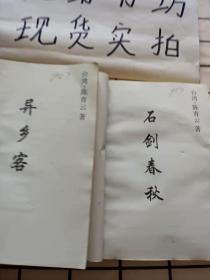 现货实拍
台湾·陈青云 著
异乡客
台湾·陈青云 著
石剑春秋